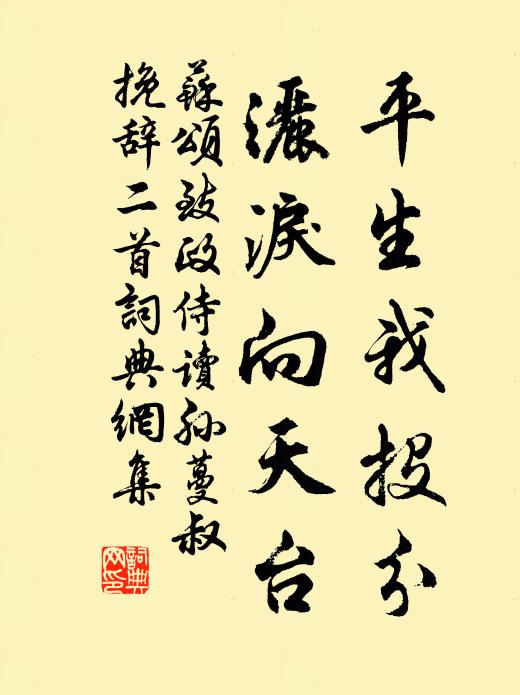 平生我投分
灑淚向天台
蘇頌致政侍讀孙蔓叔
挽辞二首詞典網集
詞典网印